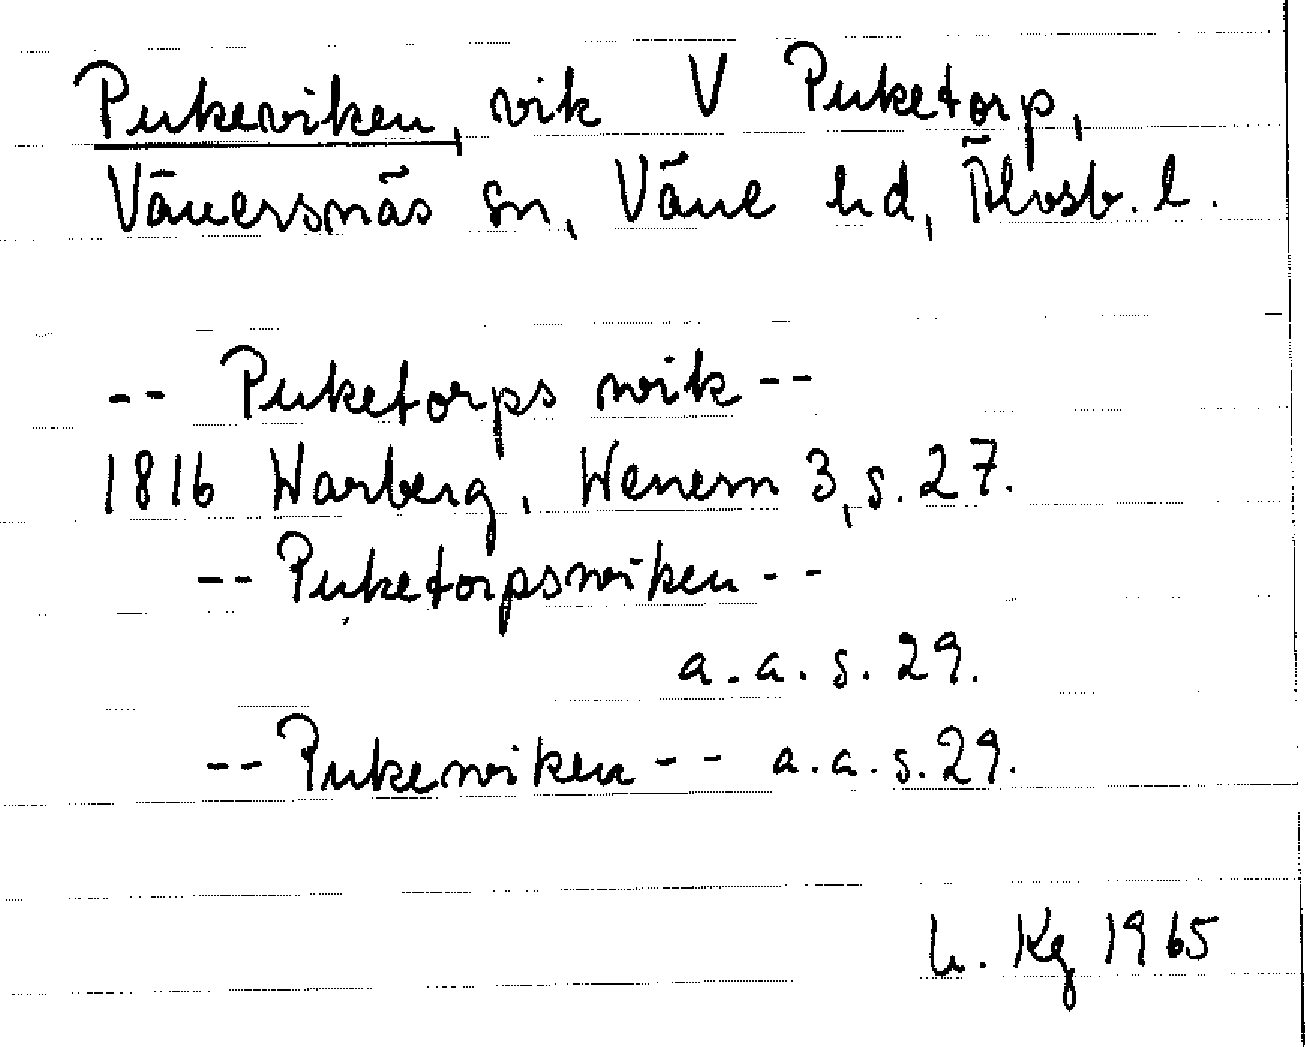 Pukeviken, vik V Puketorp,
Vänersnäs sn, Väne hd, Älvsb. l.
-- Puketorps wik --
1816 Warberg, Wenern 3, s. 27.
-- Puketorpswiken --
a. a. s. 29.
-- Pukewiken -- a. a. s. 29.
h. Kg 1965